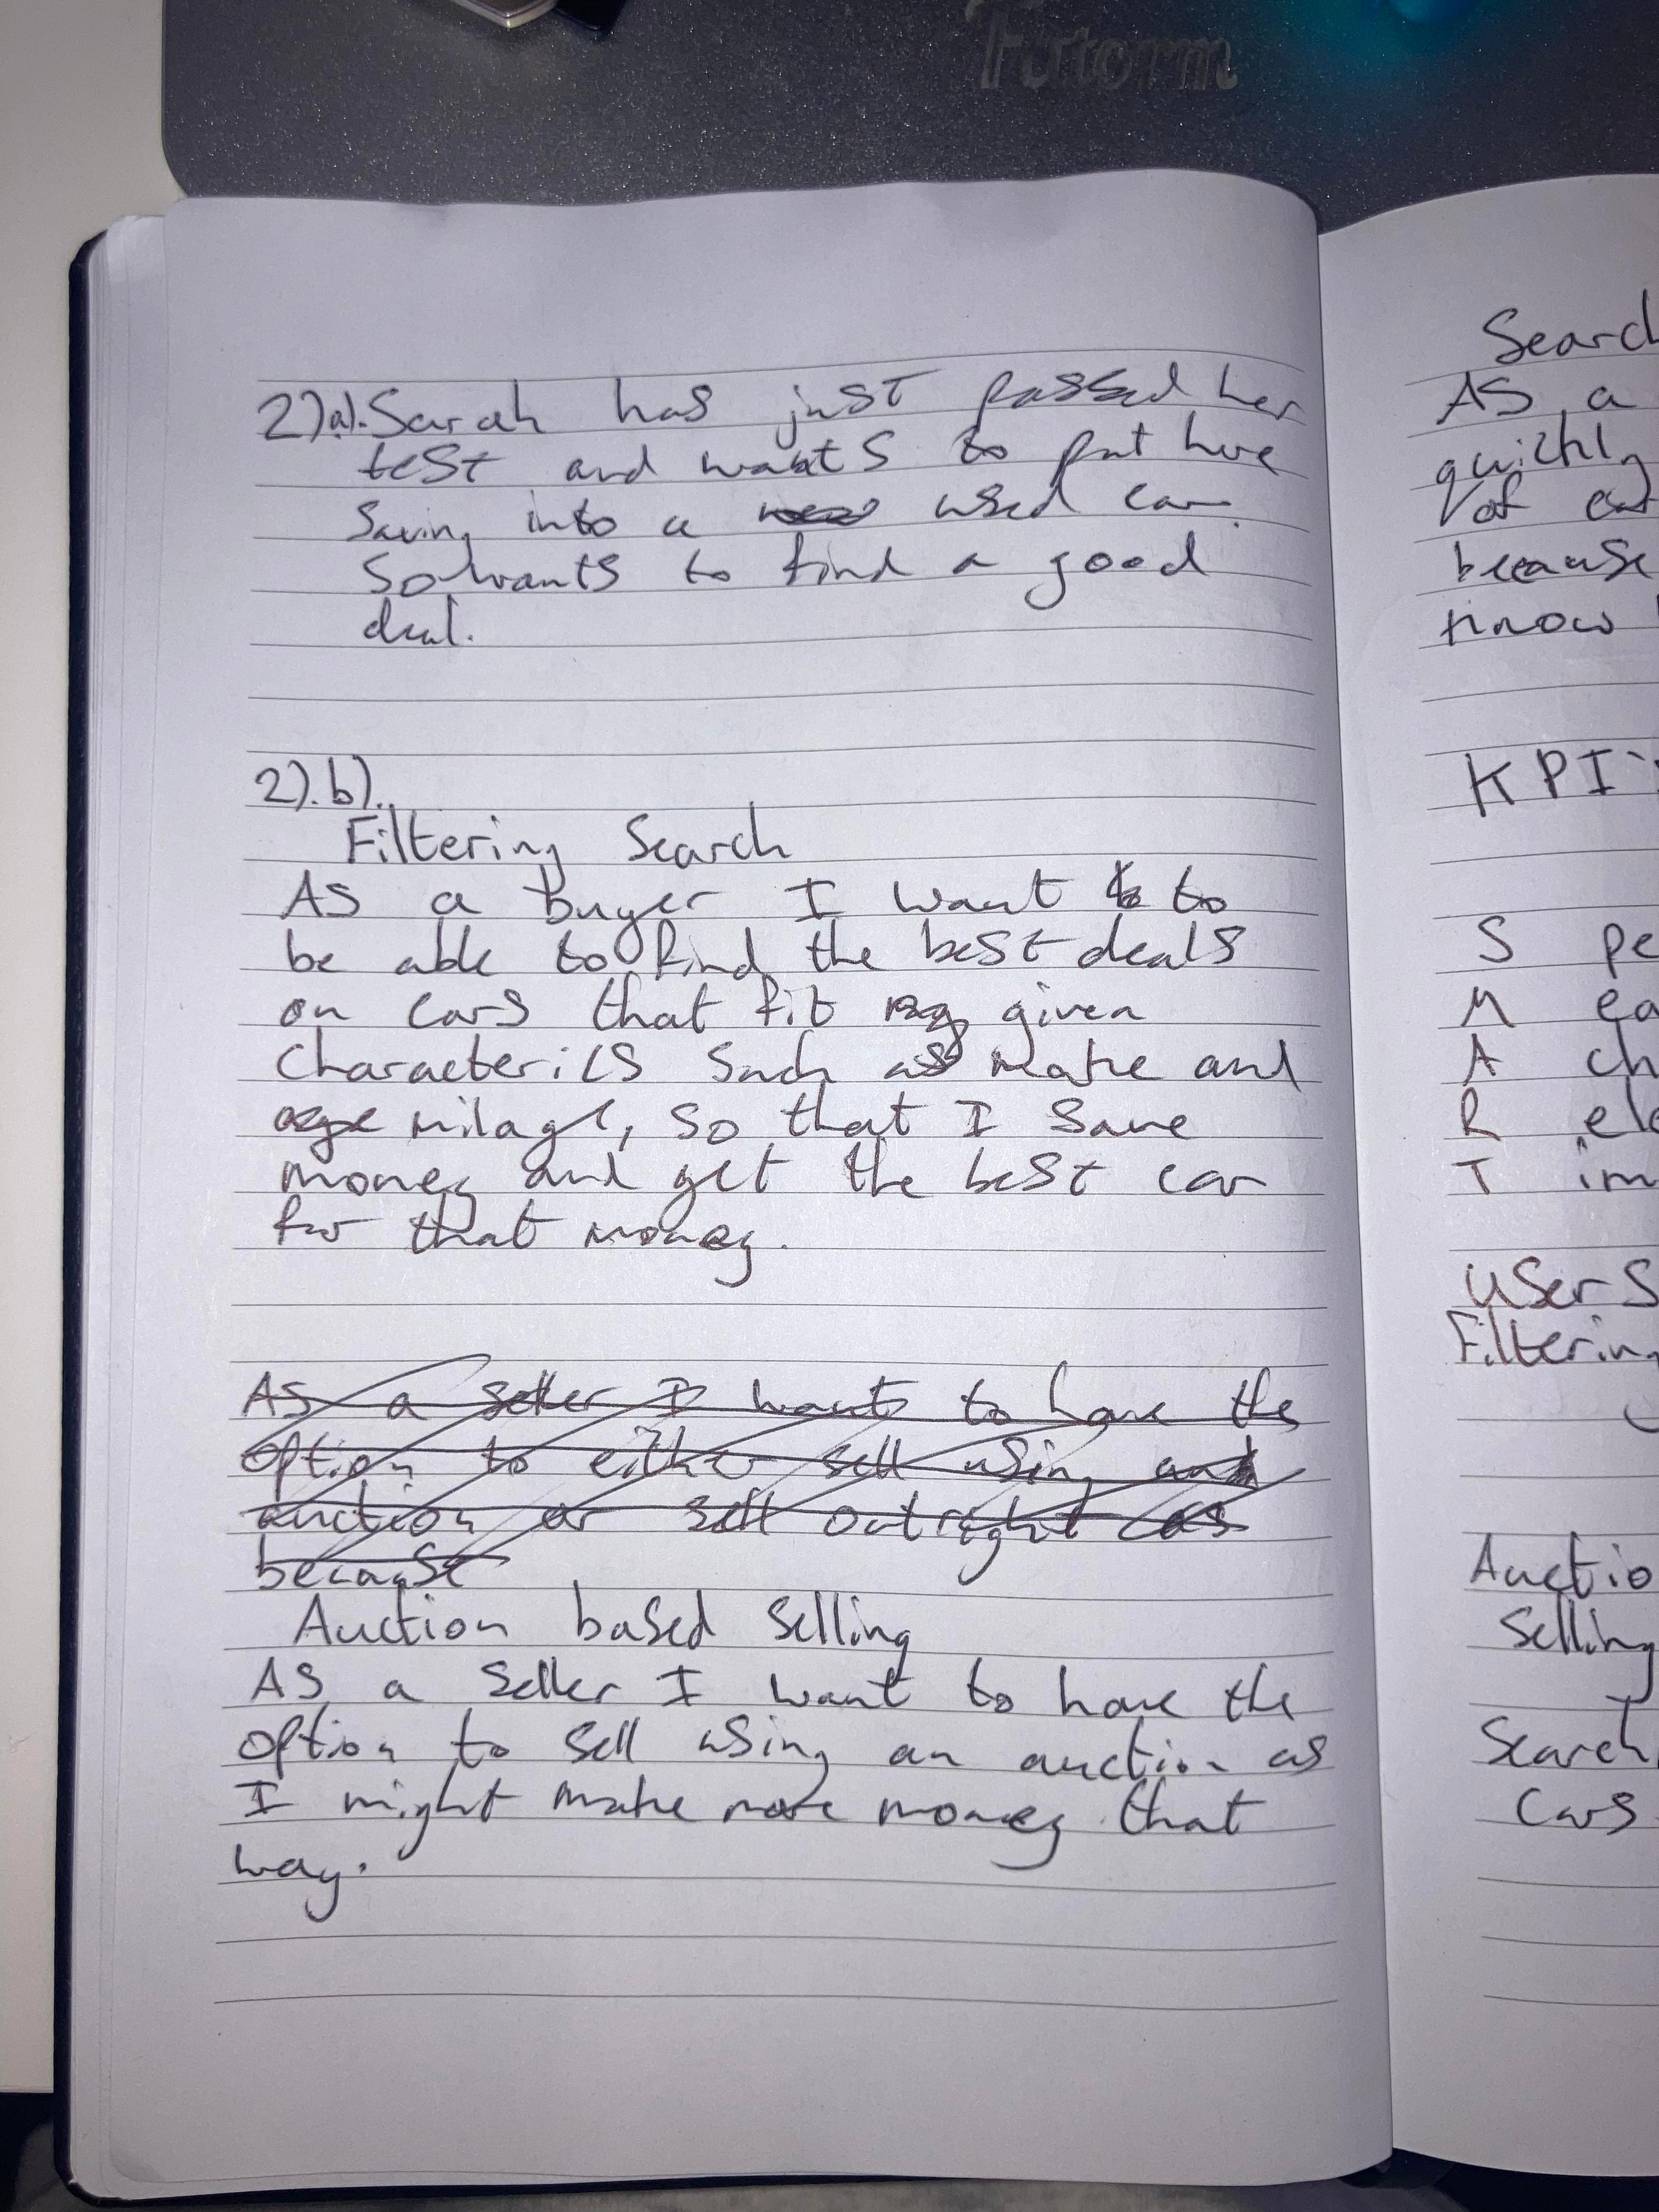 Futorm
2)a). Sarah has just passed her
test and wants to put here
Saving into a used car.
So wants to find a good
deal.
2).b).
Filtering Search
As a buyer I want to
be able to find the best deals
on cars that fit given
Characterics Such as make and
milage, so that I save
money and get the best car
for that money.
As a seller I wants to have the
option to either sell using and
auction or sell outright as
because
Auction based Selling
As a Seller I want to have the
option to sell using an auction as
I might make more money that
way.
Search
As a
quickly
of
because
know
KPI's
S pe
M ea
A ch
R ele
T im
User S
Filtering
Auctio
Selling
Search
Cars